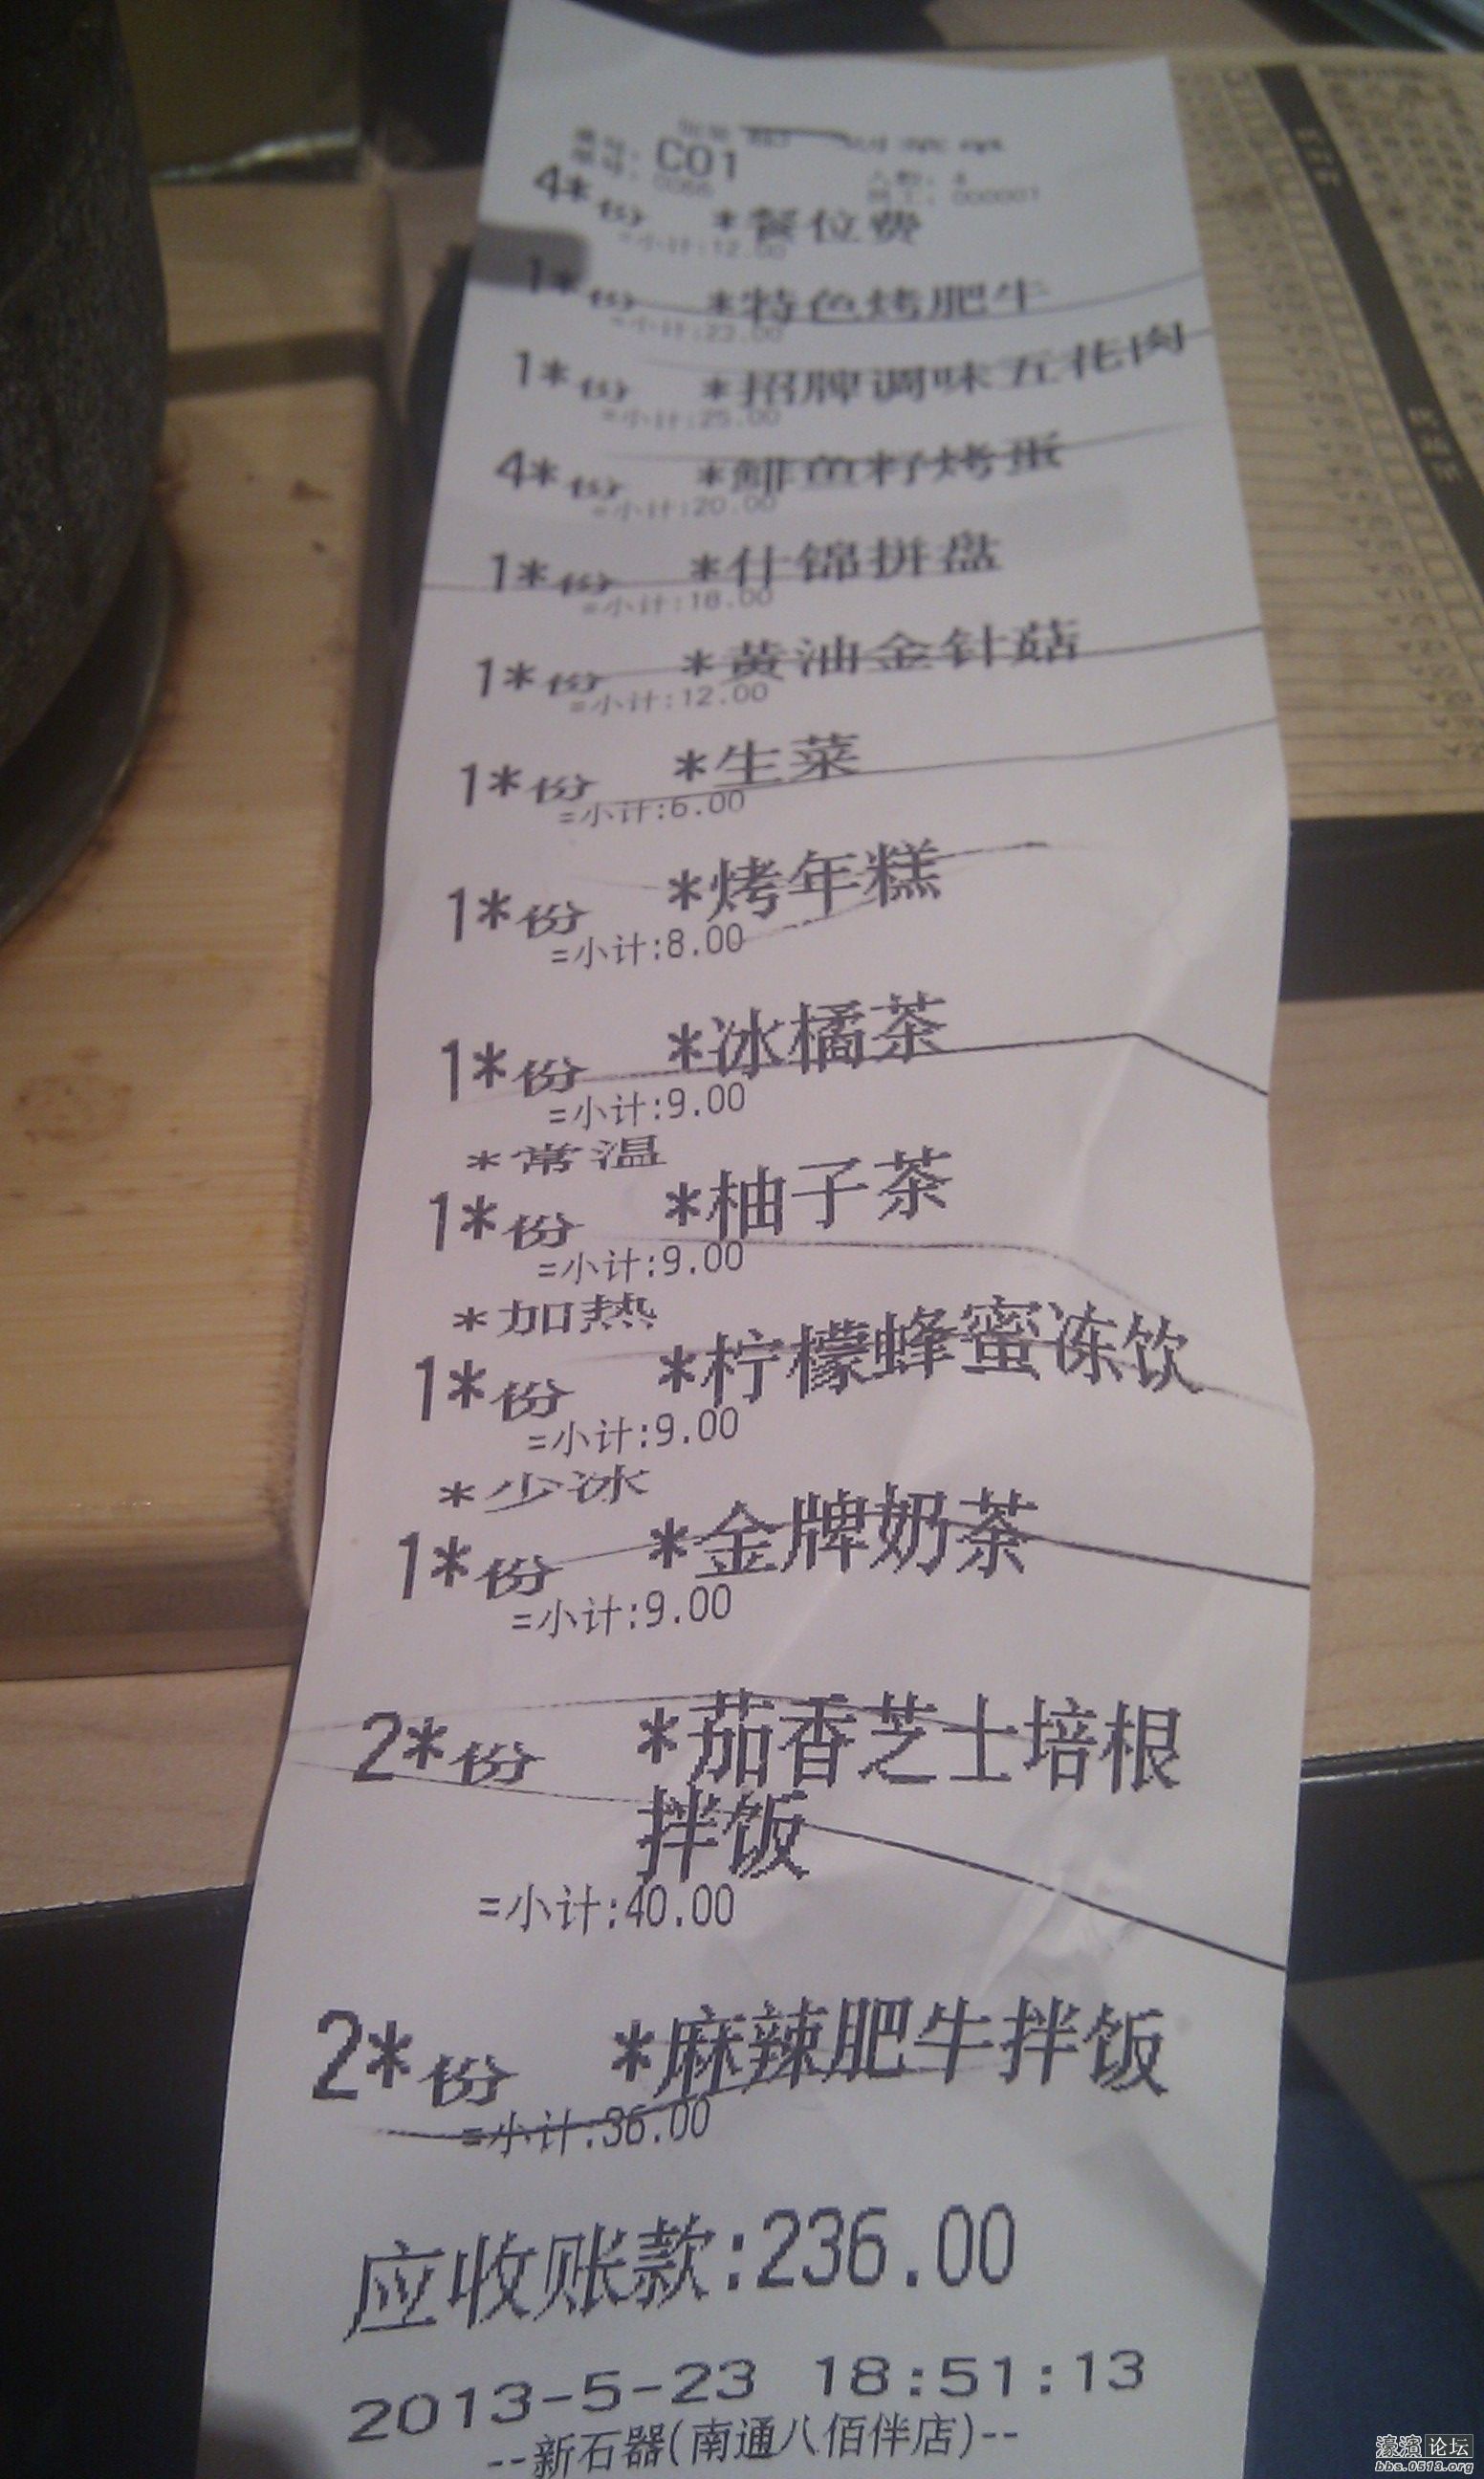 C01
人数：4
000001
4*份 *餐位费
=小计:12.00
1*份 *特色烤肥牛
=小计:23.00
1*份 *招牌调味五花肉
=小计:25.00
4*份 *鲱鱼籽烤蛋
=小计:20.00
1*份 *什锦拼盘
=小计:18.00
1*份 *黄油金针菇
=小计:12.00
1*份 *生菜
=小计:6.00
1*份 *烤年糕
=小计:8.00
1*份 *冰橘茶
=小计:9.00
*常温
1*份 *柚子茶
=小计:9.00
*加热
1*份 *柠檬蜂蜜冻饮
=小计:9.00
*少冰
1*份 *金牌奶茶
=小计:9.00
2*份 *茄香芝士培根
拌饭
=小计:40.00
2*份 *麻辣肥牛拌饭
=小计:36.00
应收账款:236.00
2013-5-23 18:51:13
--新石器(南通八佰伴店)--
濠滨论坛
bbs.0513.org